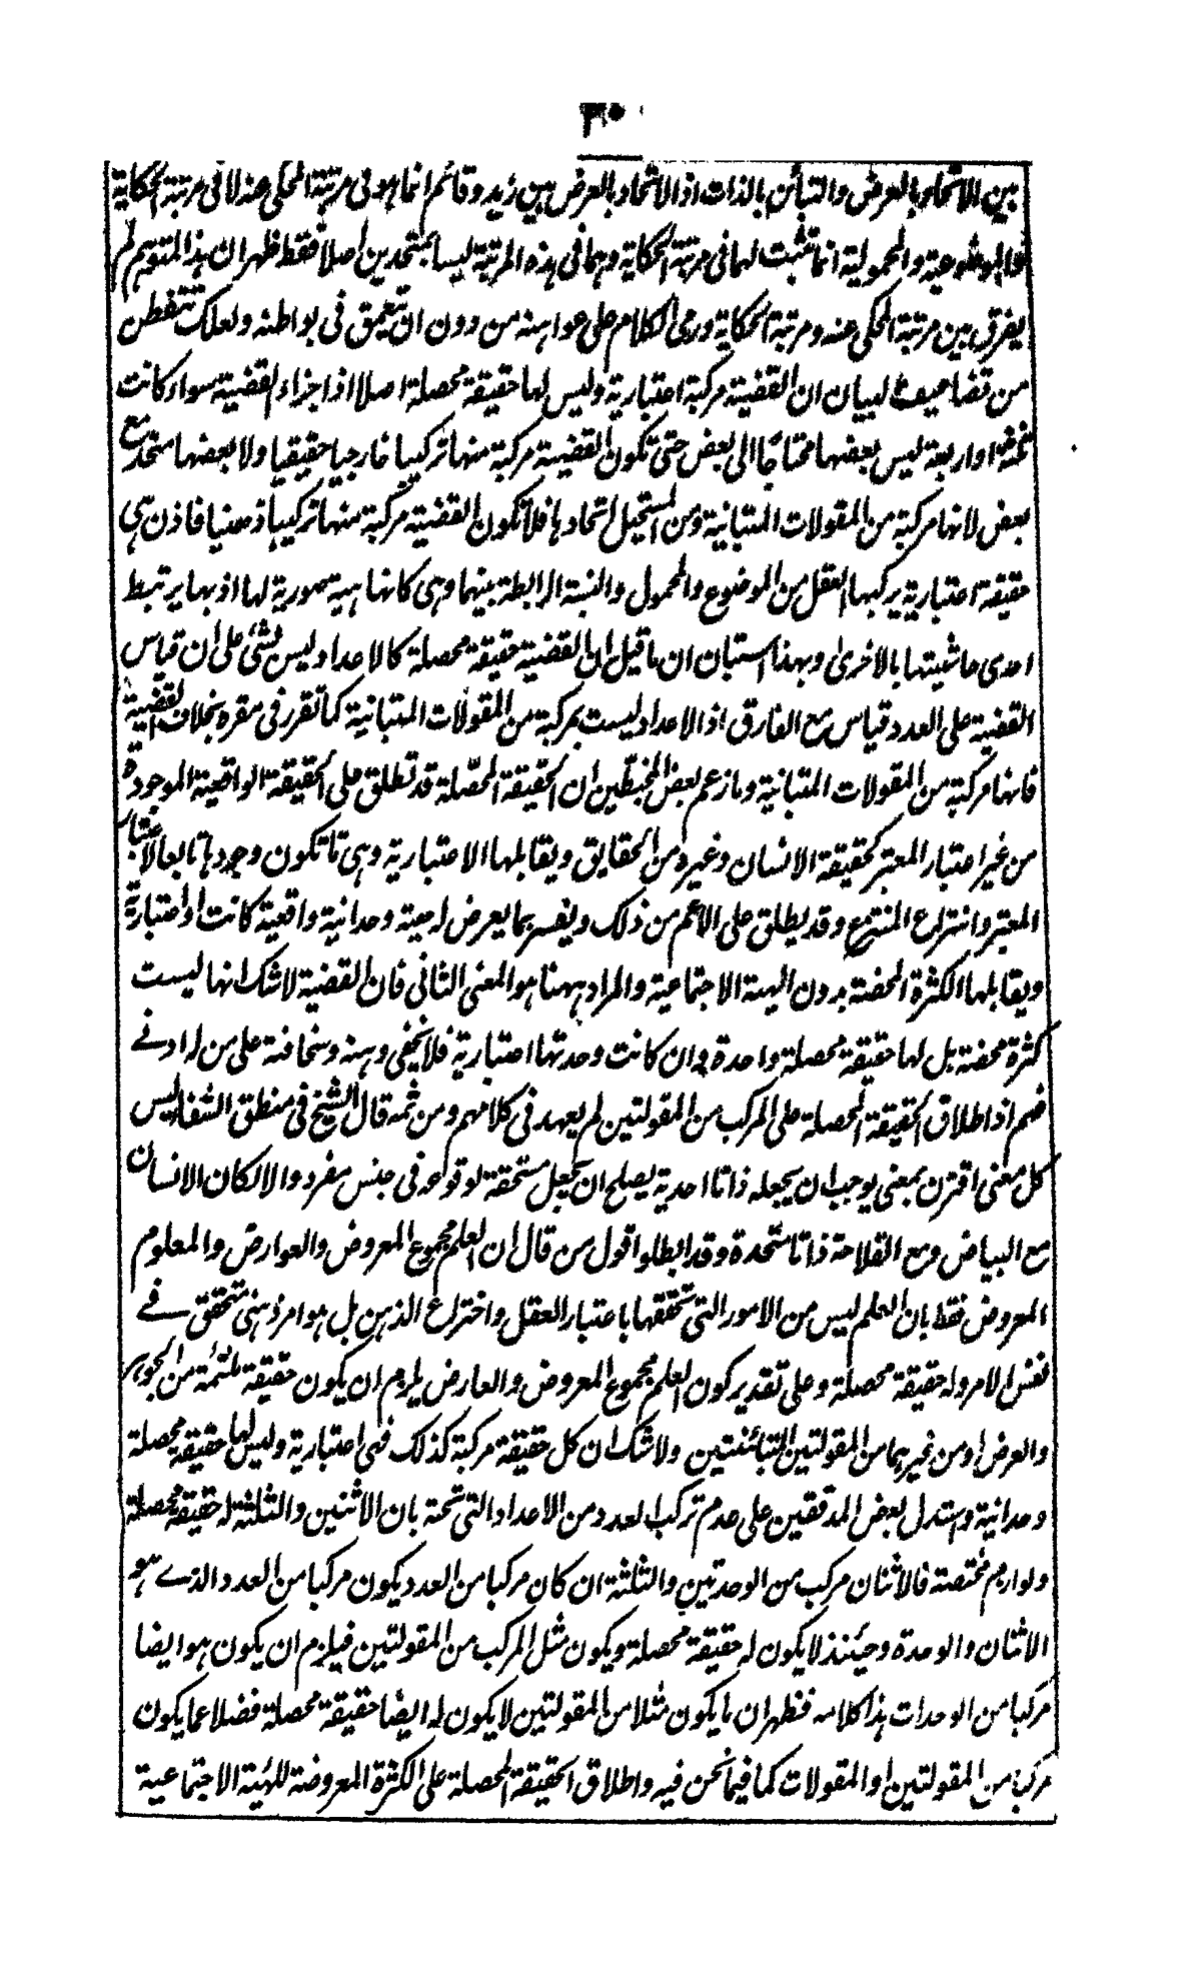 ٣٠
بين الاتحاد بالعرض والتبائن بالذات اذ الاتحاد بالعرض بين زيد وقائم انما هو فى مرتبة المحكى عنه لا فى مرتبة الحكاية
والموضوعية والمحمولية انما تثبت لهما فى مرتبة الحكاية وهما فى هذه المرتبة ليسا بمتحدين اصلا فقط ظهر ان هذا المتوهم لم
يفرق بين مرتبة المحكى عنه ومرتبة الحكاية ورمى الكلام على عواهنه من دون ان يتعمق فى بواطنه ولعلك تتفطن
من تضاعيف البيان ان القضية مركبة اعتبارية وليس لها حقيقة محصلة اصلا اذ اجزاء القضية سواء كانت
ثلثة او اربعة ليس بعضها محتاجا الى بعض حتى تكون القضية مركبة منها تركيبا خارجيا حقيقيا ولا بعضها متحد مع
بعض لانها مركبة من المقولات المتبانية ومن المستحيل اتحادها فلا تكون القضية مركبة منها تركيبا ذهنيا فاذن هى
حقيقة اعتبارية يركبها العقل من الموضوع والمحمول والنسبة الرابطة بينهما وهى كانها هيئة صورية لها اذ بها يرتبط
احدى حاشيتها بالاخرى وبهذا استبان ان ما قيل ان القضية حقيقة محصلة كالاعداد ليس بشئ على ان قياس
القضية على العدد قياس مع الفارق اذ الاعداد ليست بمركبة من المقولات المتبانية كما تقرر فى مقره بخلاف القضية
فانها مركبة من المقولات المتبانية وما زعم بعض المخبطين ان الحقيقة المحصلة قد تطلق على الحقيقة الواقعية الموجودة
من غير اعتبار المعتبر كحقيقة الانسان وغيره من الحقايق ويقابلها الاعتبارية وهى ما تكون وجودها تابعا لاعتبار
المعتبر وانتزاع المنتزع وقد يطلق على الاعم من ذلك ويفسر بما يعرض له معية وحدانية واقعية كانت او اعتبارية
ويقابلها الكثرة المحضة بدون الهيئة الاجتماعية والمراد ههنا هو المعنى الثانى فان القضية لا شك انها ليست
كثرة محضة بل لها حقيقة محصلة واحدة وان كانت وحدتها اعتبارية فلا يخفى وهنه وسخافته على من له ادنى
فهم اذ اطلاق الحقيقة المحصلة على المركب من المقولتين لم يعهد فى كلامهم ومن ثمه قال الشيخ فى منطق الشفا ليس
كل معنى اقترن بمعنى يوجب ان يجعله ذاتا احدية يصلح ان يجعل مستحقة لوقوعه فى جنس مفرد والا لكان الانسان
مع البياض ومع الفلاحة ذاتا متحدة وقد ابطلوا قول من قال ان العلم مجموع المعروض والعوارض والمعلوم
المعروض فقط بان العلم ليس من الامور التى تحققها باعتبار العقل واختراع الذهن بل هو امر ذهنى متحقق فى
نفس الامر وله حقيقة محصلة وعلى تقدير كون العلم مجموع المعروض والعارض يلزم ان يكون حقيقة ملتئمة من الجوهر
والعرض او من غيرهما من المقولتين المتبائنتين ولا شك ان كل حقيقة مركبة كذلك فهى اعتبارية وليس لها حقيقة محصلة
وحدانية واستدل بعض المدققين على عدم تركب العدد من الاعداد التى تحته بان الاثنين والثلثة له حقيقة محصلة
ولوازم مختصة فالاثنان مركب من الوحدتين والثلثة ان كان مركبا من العدد يكون مركبا من العدد الذى هو
الاثنان والوحدة وحينئذ لا يكون له حقيقة محصلة ويكون مثل المركب من المقولتين فيلزم ان يكون هو ايضا
مركبا من الوحدات هذا كلامه فظهر ان ما يكون مثلا من المقولتين لا يكون له ايضا حقيقة محصلة فضلا عما يكون
مركبا من المقولتين او المقولات كما فيما نحن فيه واطلاق الحقيقة المحصلة على الكثرة المعروضة للهيئة الاجتماعية